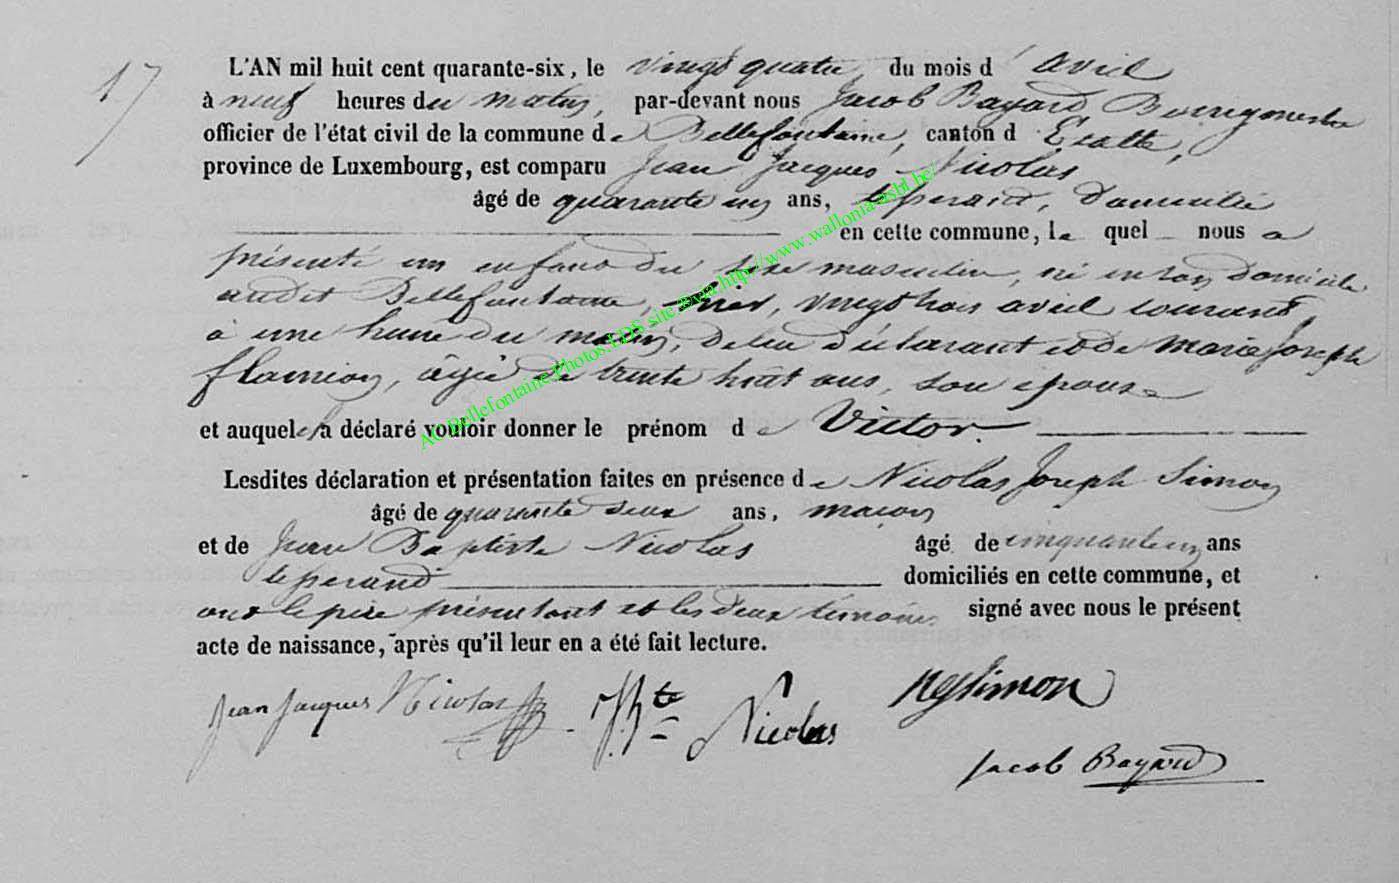 17
L'AN mil huit cent quarante-six, le vingt quatre du mois d'avril
à neuf heures du matin, par-devant nous Jacob Bayard Bourgmestre
officier de l'état civil de la commune de Bellefontaine, canton d'Etalle,
province de Luxembourg, est comparu Jean Jacques Nicolas
âgé de quarante un ans, tisserand, domicilié
en cette commune, le quel nous a
présenté un enfant du sexe masculin, né en son domicile
audit Bellefontaine, hier, vingt trois avril courant,
à une heure du matin, de lui déclarant et de Marie Joseph
flamion, âgée de trente huit ans, son épouse
et auquel il a déclaré vouloir donner le prénom de Victor.
Lesdites déclaration et présentation faites en présence de Nicolas Joseph Simon
âgé de quarante deux ans, maçon
et de Jean Baptiste Nicolas âgé de cinquante un ans
tisserand domiciliés en cette commune, et
ont le père présentant et les deux témoins signé avec nous le présent
acte de naissance, après qu'il leur en a été fait lecture.
Jean Jacques Nicolas J. Bte Nicolas NJ Simon
Jacob Bayard
AC.Bellefontaine.Photos.EDS.site.©via.http://www.wallonia-asbl.be/